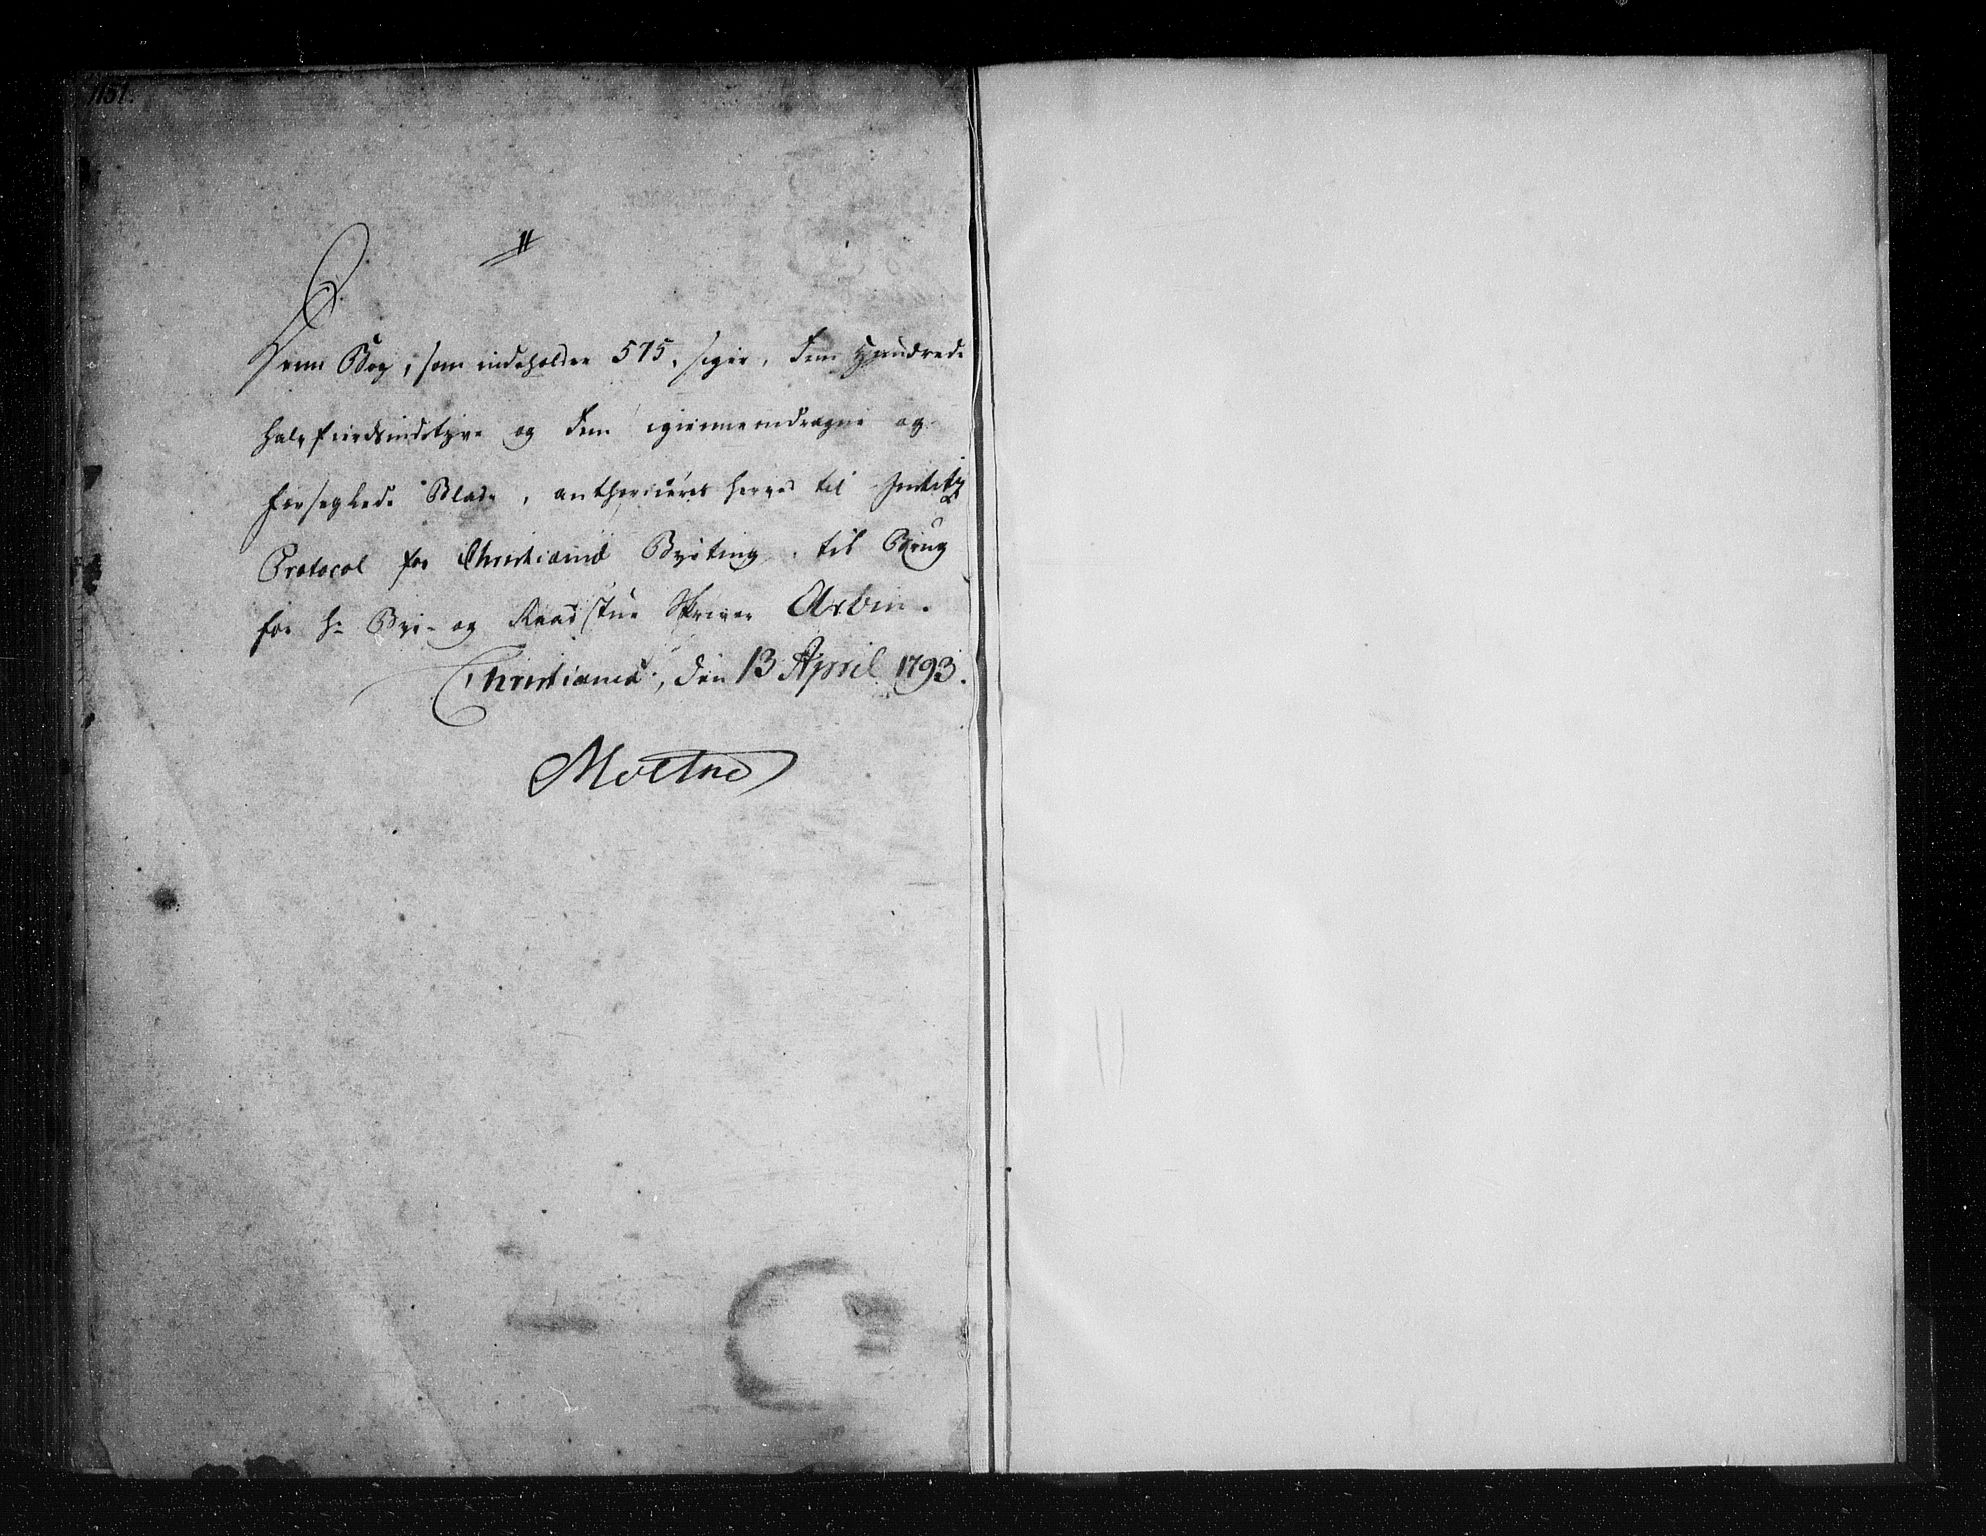 1151.
Denne Bog, som indeholder 575, siger, Fem Hundrede
halvfierdsindstyve og Fem igiennemdragne og
forseglede Blade, authoriseres herved til Justits
Protocol for Christiania Byeting, til Brug
for Hr Bye- og Raadstue Skriver Arbin.
Christiania, den 13 April 1793.